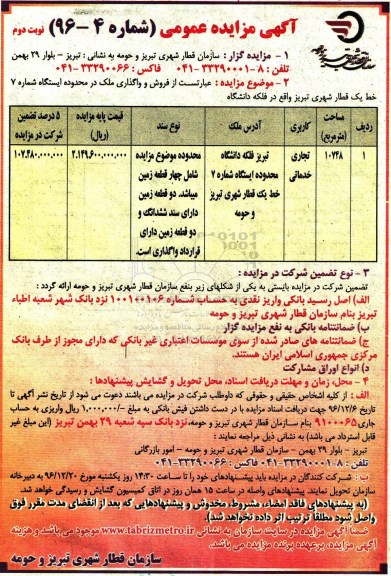 آگهی مزایده عمومی (شماره ۴ -۹۶)
نوبت دوم
۱ - مزایده گزار : سازمان قطار شهری تبریز و حومه به نشانی : تبریز - بلوار ۲۹ بهمن
تلفن : ۸-۳۳۲۹۰۰۰۱ -۰۴۱ فاکس : ۳۳۲۹۰۰۶۶-۰۴۱
۲ - موضوع مزایده : عبارتست از فروش و واگذاری ملک در محدوده ایستگاه شماره ۷
خط یک قطار شهری تبریز واقع در فلکه دانشگاه
ردیف
مساحت (مترمربع)
کاربری
آدرس ملک
نوع سند
قیمت پایه مزایده (ریال)
۵ درصد تضمین شرکت در مزایده
۱
۱۰۷۴۸
تجاری خدماتی
تبریز فلکه دانشگاه محدوده ایستگاه شماره ۷ خط یک قطار شهری تبریز و حومه
محدوده موضوع مزایده شامل چهار قطعه زمین میباشد. دو قطعه زمین دارای سند ششدانگ و دو قطعه زمین دارای قرارداد واگذاری است.
۲.۱۴۹.۶۰۰.۰۰۰.۰۰۰
۱۰۷.۴۸۰.۰۰۰.۰۰۰
۳ - نوع تضمین شرکت در مزایده :
تضمین شرکت در مزایده بایستی به یکی از شکلهای زیر بنفع سازمان قطار شهری تبریز و حومه ارائه گردد :
الف) اصل رسید بانکی واریز نقدی به حساب شماره ۱۰۰۱۰۰۱۰۶ نزد بانک شهر شعبه اطباء
تبریز بنام سازمان قطار شهری تبریز و حومه
ب) ضمانتنامه بانکی به نفع مزایده گزار
ج) ضمانتنامه های صادر شده از سوی موسسات اعتباری غیر بانکی که دارای مجوز از طرف بانک
مرکزی جمهوری اسلامی ایران هستند.
د) انواع اوراق مشارکت
۴ - محل، زمان و مهلت دریافت اسناد، محل تحویل و گشایش پیشنهادها :
الف : از کلیه اشخاص حقیقی و حقوقی که داوطلب شرکت در مزایده می باشند دعوت می شود از تاریخ نشر آگهی تا
تاریخ ۹۶/۱۲/۶ جهت دریافت اسناد مزایده با در دست داشتن فیش بانکی به مبلغ -/۱,۰۰۰,۰۰۰ ریال واریزی به حساب
جاری ۹۱۰۰۰۶۵ بنام سازمان قطار شهری تبریز و حومه،نزد بانک سپه شعبه ۲۹ بهمن تبریز (این مبلغ غیر
قابل استرداد می باشد) به نشانی ذیل مراجعه نمایند :
تبریز - بلوار ۲۹ بهمن - سازمان قطار شهری تبریز و حومه - امور بازرگانی
تلفن : ۸-۳۳۲۹۰۰۰۱-۰۴۱ فاکس : ۳۳۲۹۰۰۶۶-۰۴۱
ب : شرکت کنندگان در مزایده باید پیشنهادهای خود را تا ساعت ۱۴:۳۰ روز یکشنبه مورخ ۹۶/۱۲/۲۰ به دبیرخانه
سازمان تحویل نمایند. پیشنهادهای واصله در ساعت ۱۵ همان روز در اتاق کمیسیون گشایش و رسیدگی خواهد شد.
(به پیشنهادهای فاقد امضاء، مشروط، مخدوش و پیشنهادهایی که بعد از انقضای مدت مقرر فوق
واصل شود مطلقاً ترتیب اثر داده نخواهد شد).
ضمناً آگهی مزایده در سایت سازمان به نشانی www.tabrizmetro.ir موجود می باشد و هزینه
آگهی مزایده برعهده برنده مزایده می باشد.
سازمان قطار شهری تبریز و حومه